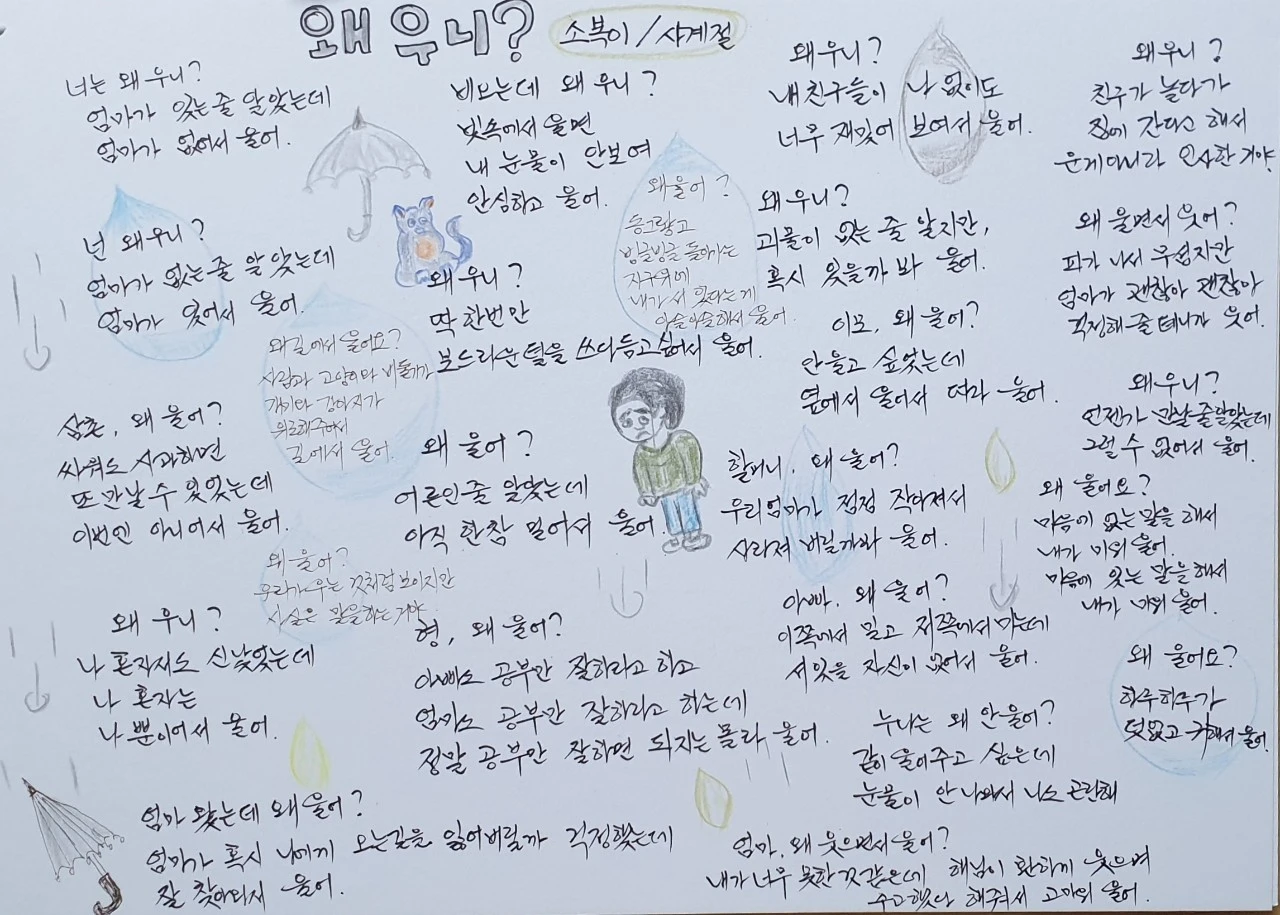 왜 우니?
소복이 / 사계절
너는 왜 우니?
엄마가 있는 줄 알았는데
엄마가 없어서 울어.
비오는데 왜 우니?
빗속에서 울면
내 눈물이 안보여
안심하고 울어.
왜 우니?
내 친구들이 나 없이도
너무 재밌어 보여서 울어.
왜 우니?
친구가 놀다가
집에 간다고 해서
운게 아니라 인사한 거야
넌 왜 우니?
엄마가 없는 줄 알았는데
엄마가 있어서 울어.
왜 우니?
딱 한번만
보드라운 털을 쓰다듬고 싶어서 울어.
왜 울어?
동그랗고
빙글빙글 돌아가는
지구위에
내가 서 있다는 게
아슬아슬해서 울어.
왜 우니?
괴물이 없는 줄 알지만,
혹시 있을까 봐 울어.
왜 울면서 웃어?
피가 나서 무섭지만
엄마가 괜찮아 괜찮아
걱정해 줄 테니까 웃어.
왜 길에서 울어요?
사람과 고양이와 비둘기가
개미와 강아지가
위로해주어서
길에서 울어.
이모, 왜 울어?
안 울고 싶었는데
옆에서 울어서 따라 울어.
왜 우니?
언젠가 만날 줄 알았는데
그럴 수 없어서 울어.
삼촌, 왜 울어?
싸워도 사과하면
또 만날 수 있었는데
이번엔 아니어서 울어.
왜 울어?
어른인 줄 알았는데
아직 한참 멀어서 울어
할머니, 왜 울어?
우리 엄마가 점점 작아져서
사라져 버릴까봐 울어.
왜 울어요?
마음에 없는 말을 해서
내가 미워 울어.
마음에 있는 말을 해서
내가 미워 울어.
왜 울어?
우리가 우는 것처럼 보이지만
사실은 말을하는 거야
왜 우니?
나 혼자서도 신났었는데
나 혼자는
나 뿐이어서 울어.
형, 왜 울어?
아빠도 공부만 잘하라고 하고
엄마도 공부만 잘하라고 하는데
정말 공부만 잘하면 되지는 몰라 울어.
아빠, 왜 울어?
이쪽에서 밀고 저쪽에서 미는데
서있을 자신이 없어서 울어.
왜 울어요?
하루하루가
덧없고 귀해서 울어.
누나는 왜 안울어?
같이 울어주고 싶은데
눈물이 안 나와서 나도 곤란해
엄마 왔는데 왜 울어?
엄마가 혹시 나에게 오는길을 잃어버릴까 걱정했는데
잘 찾아와서 울어.
엄마, 왜 웃으면서 울어?
내가 너무 못한 것 같은데 해님이 환하게 웃으며
수고했다 해줘서 고마워 울어.